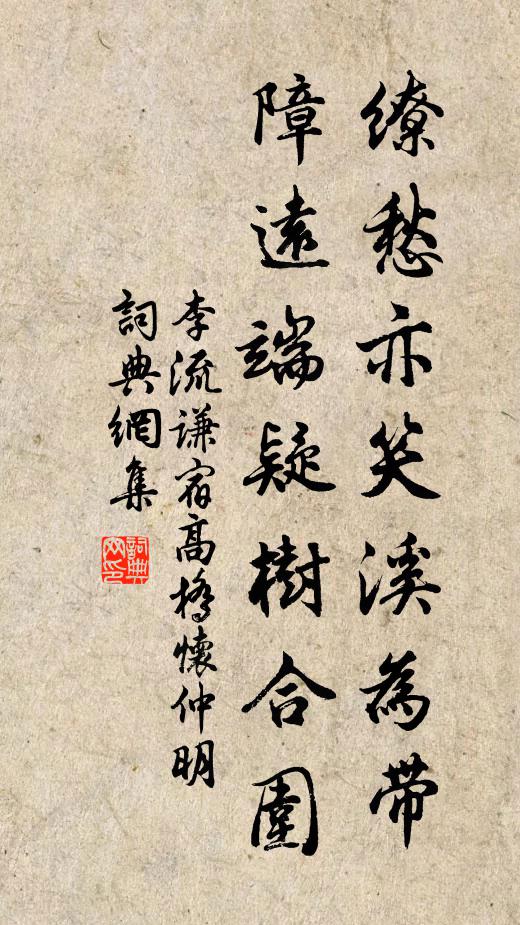 繚愁亦笑溪為帶
障遠端疑樹合圍
李流謙宿高橋懷仲明
詞典網集
詞典网印